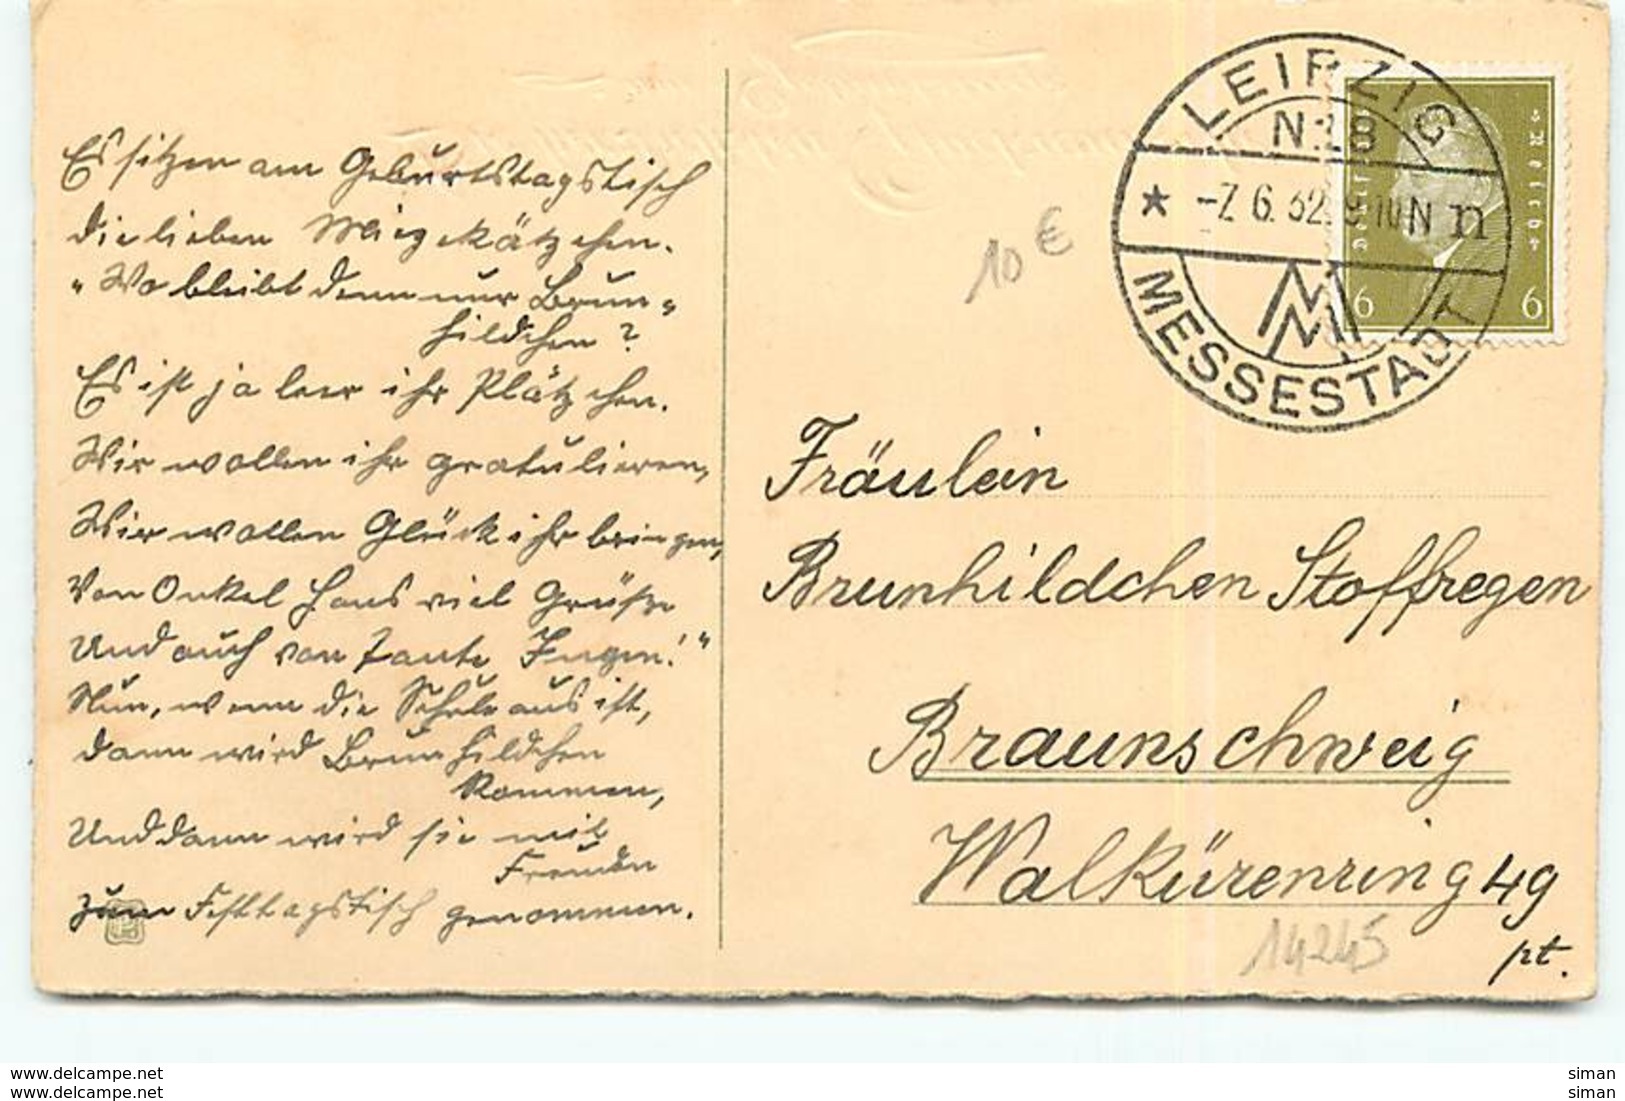 Es sitzen am Geburtstagstisch
die lieben Miezekätzchen.
"Wo bleibt denn nur Brun=
hildchen?
Es ist ja leer ihr Plätzchen.
Wir wollen ihr gratulieren,
Wir wollen Glück ihr bringen,
Von Onkel Hans viel Grüße
Und auch von Tante Ingen!"
Nun, wenn die Schule aus ist,
dann wird Brunhildchen
kommen,
Und dann wird sie mit
Freuden
zum Festtagstisch genommen.
LEIPZIG
N18
* -7.6.32. 9-10 N n
MESSESTADT
Deutsches Reich
6 6
10 €
Fräulein
Brunhildchen Stoffregen
Braunschweig
Walkürenring 49
pt.
14245
www.delcampe.net
www.delcampe.net
siman
siman